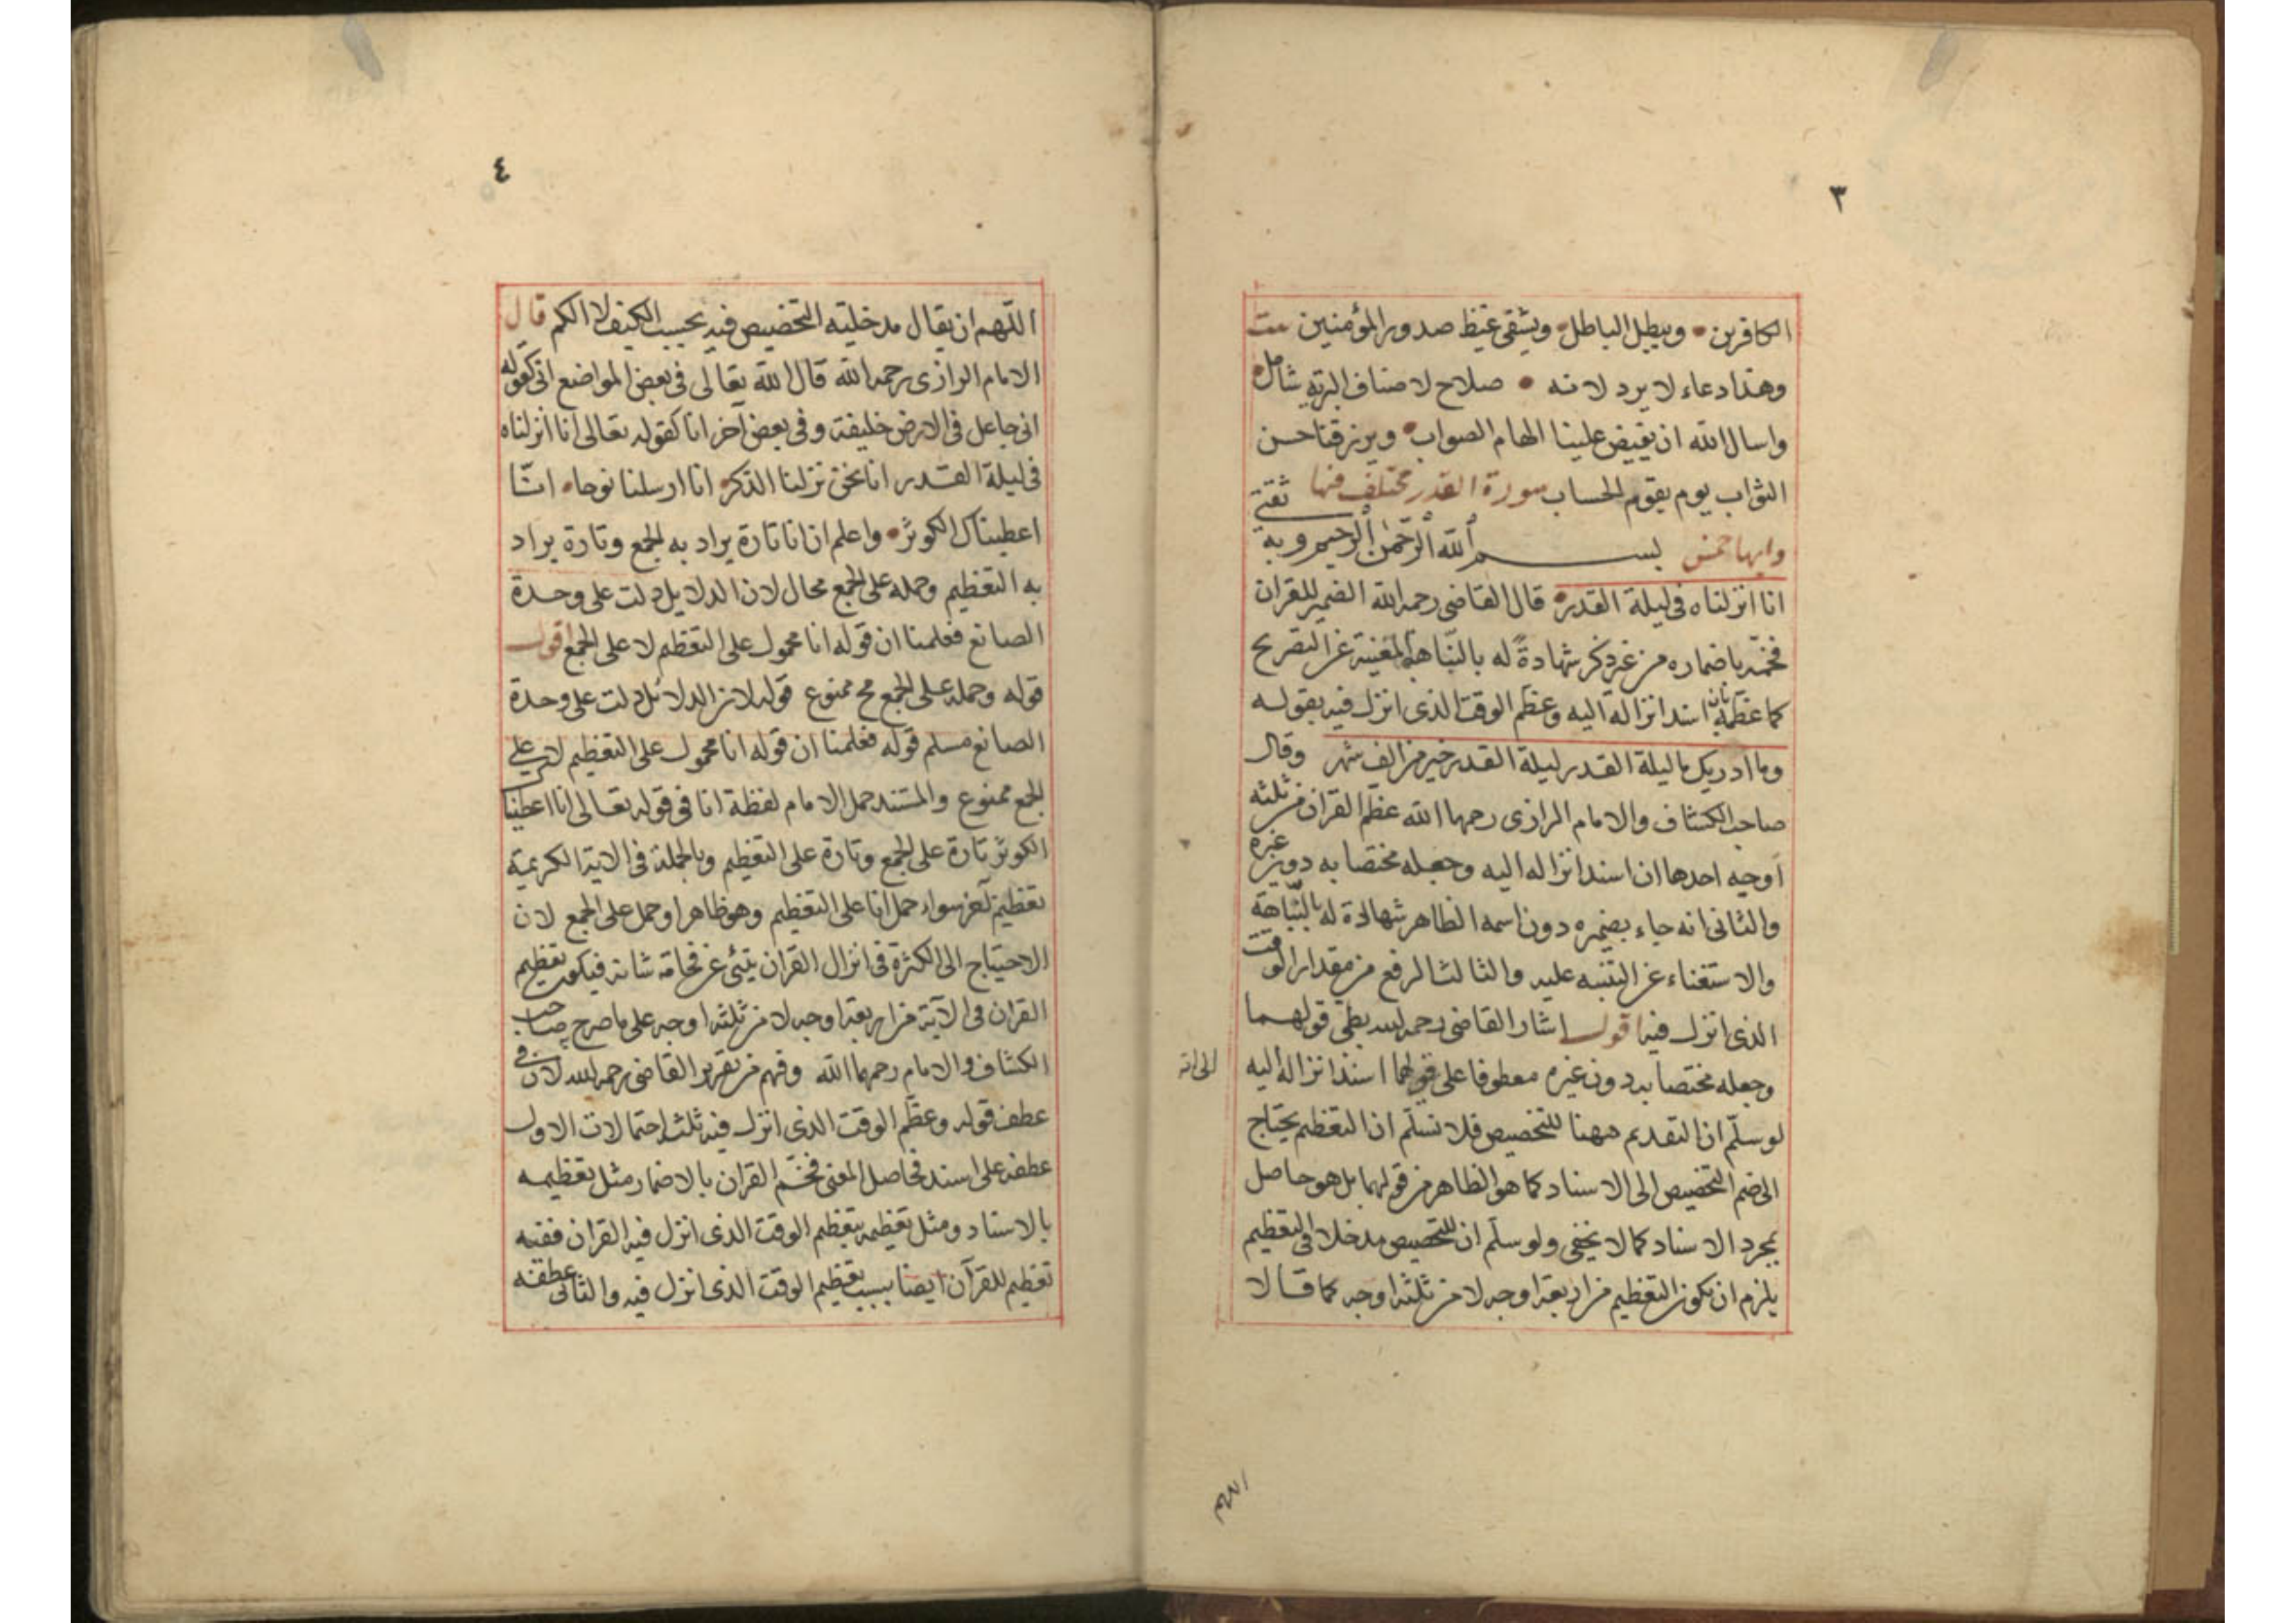 ٣
الكافرين • ويبطل الباطل • ويشفى غيظ صدور المؤمنين بيت
وهذا دعاء لا يرد لانه • صلاح لاصناف البرية شامل •
واسال الله ان يفيض علينا الهام الصواب • ويرزقنا حسن
الثواب يوم يقوم الحساب سورة القدر مختلف فيها
وايها خمس بسم الله الرحمن الرحيم وبه ثقتى
انا انزلناه فى ليلة القدر • قال القاضى رحمه الله الضمير للقران
فخمه باضماره من غير ذكر شهادة له بالنباهة المغنية عن التصريح
كما عظمه بان اسند انزاله اليه وعظم الوقت الذى انزل فيه بقوله
وما ادريك ما ليلة القدر ليلة القدر خير من الف شهر وقال
صاحب الكشاف والامام الرازى رحمهما الله عظم القران من ثلثه
اوجه احدها ان اسند انزاله اليه وجعله مختصا به دون غيره
والثانى انه جاء بضميره دون اسمه الظاهر شهادة له بالنباهة
والاستغناء عن التنبيه عليه والثالث الرفع من مقدار الوقت
الذى انزل فيه اقول اشار القاضى رحمه الله بطى قولهما
وجعله مختصا به دون غيره معطوفا على قولهما اسند انزاله اليه الى انه
لو سلم ان التقديم ههنا للتخصيص فلا نسلم ان التعظيم يحتاج
الى ضم التخصيص الى الاسناد كما هو الظاهر من قولهما بل هو حاصل
بمجرد الاسناد كما لا يخفى ولو سلم ان للتخصيص مدخلا فى التعظيم
يلزم ان يكون التعظيم من اربعة اوجه لا من ثلثة اوجه كما قالا
اللهم
٤
اللهم ان يقال مدخلية التخصيص فيه بحسب الكيف لا الكم قال
الامام الرازى رحمه الله قال الله تعالى فى بعض المواضع انى كقوله
انى جاعل فى الارض خليفة وفى بعض آخر انا كقوله تعالى انا انزلناه
فى ليلة القدر انا نحن نزلنا الذكر • انا ارسلنا نوحا • انا
اعطيناك الكوثر • واعلم ان انا تارة يراد به الجمع وتارة يراد
به التعظيم وحمله على الجمع محال لان الدلايل دلت على وحدة
الصانع فعلمنا ان قوله انا محمول على التعظيم لا على الجمع اقول
قوله وحمله على الجمع مح ممنوع قوله لان الدلائل دلت على وحدة
الصانع مسلم قوله فعلمنا ان قوله انا محمول على التعظيم لا على
الجمع ممنوع والمستند حمل الامام لفظة انا فى قوله تعالى انا اعطيناك
الكوثر تارة على الجمع وتارة على التعظيم وبالجملة فى الاية الكريمة
تعظيم آخر سواء حمل انا على التعظيم وهو ظاهر او حمل على الجمع لان
الاحتياج الى الكثرة فى انزال القران ينبئ عن فخامة شانه فيكون تعظيم
القران فى الآية من اربعة اوجه لا من ثلثة اوجه على ما صرح صاحب
الكشاف والامام رحمهما الله وفهم من تقرير القاضى رحمه الله لان فى
عطف قوله وعظم الوقت الذى انزل فيه ثلث احتمالات الاول
عطفه على اسند فحاصل المعنى فخم القران بالاضمار مثل تعظيمه
بالاسناد ومثل تعظيمه بتعظيم الوقت الذى انزل فيه القران ففيه
تعظيم للقرآن ايضا بسبب تعظيم الوقت الذى انزل فيه والثانى عطفه